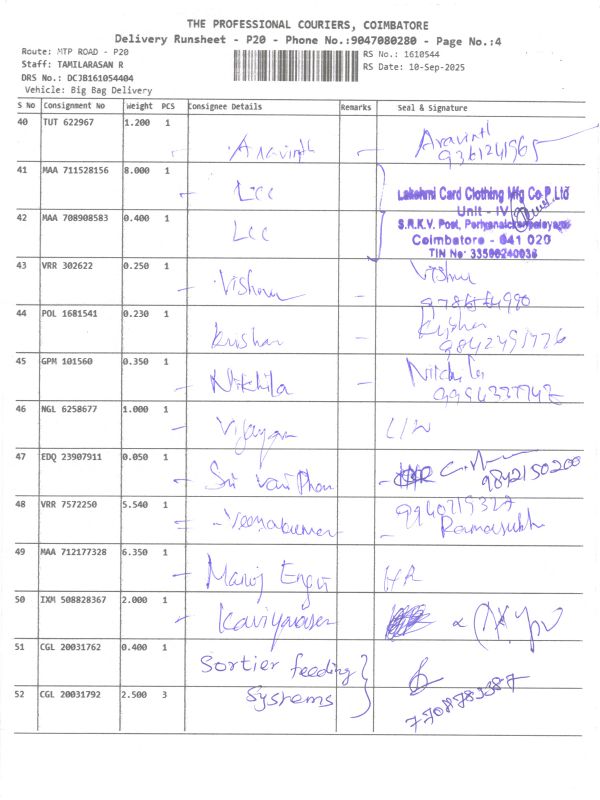 THE PROFESSIONAL COURIERS, COIMBATORE
Delivery Runsheet - P20 - Phone No.:9047080280 - Page No.:4
Route: MTP ROAD - P20
RS No.: 1610544
Staff: TAMILARASAN R
RS Date: 10-Sep-2025
DRS No.: DCJB161054404
Vehicle: Big Bag Delivery
S No Consignment No Weight PCS Consignee Details Remarks Seal & Signature
40 TUT 622967 1.200 1 Aravinth Aravinth
9361241965
41 MAA 711528156 8.000 1 Lcc Lakshmi Card Clothing Mfg Co P Ltd
Unit - IV
42 MAA 708908583 0.400 1 Lcc S.R.K.V. Post,
Coimbatore - 641 020
TIN No: 33500240036
43 VRR 302622 0.250 1 Vishnu
44 POL 1681541 0.230 1 Kishor
45 GPM 101560 0.350 1 Nikhila
46 NGL 6258677 1.000 1 Vijayan
47 EDQ 23907911 0.050 1 Sri 9842150200
48 VRR 7572250 5.540 1 Veerakumar
49 MAA 712177328 6.350 1 Manoj
50 IXM 508828367 2.000 1 Kaviyarasan
51 CGL 20031762 0.400 1 Sortier feeding
52 CGL 20031792 2.500 3 Systems